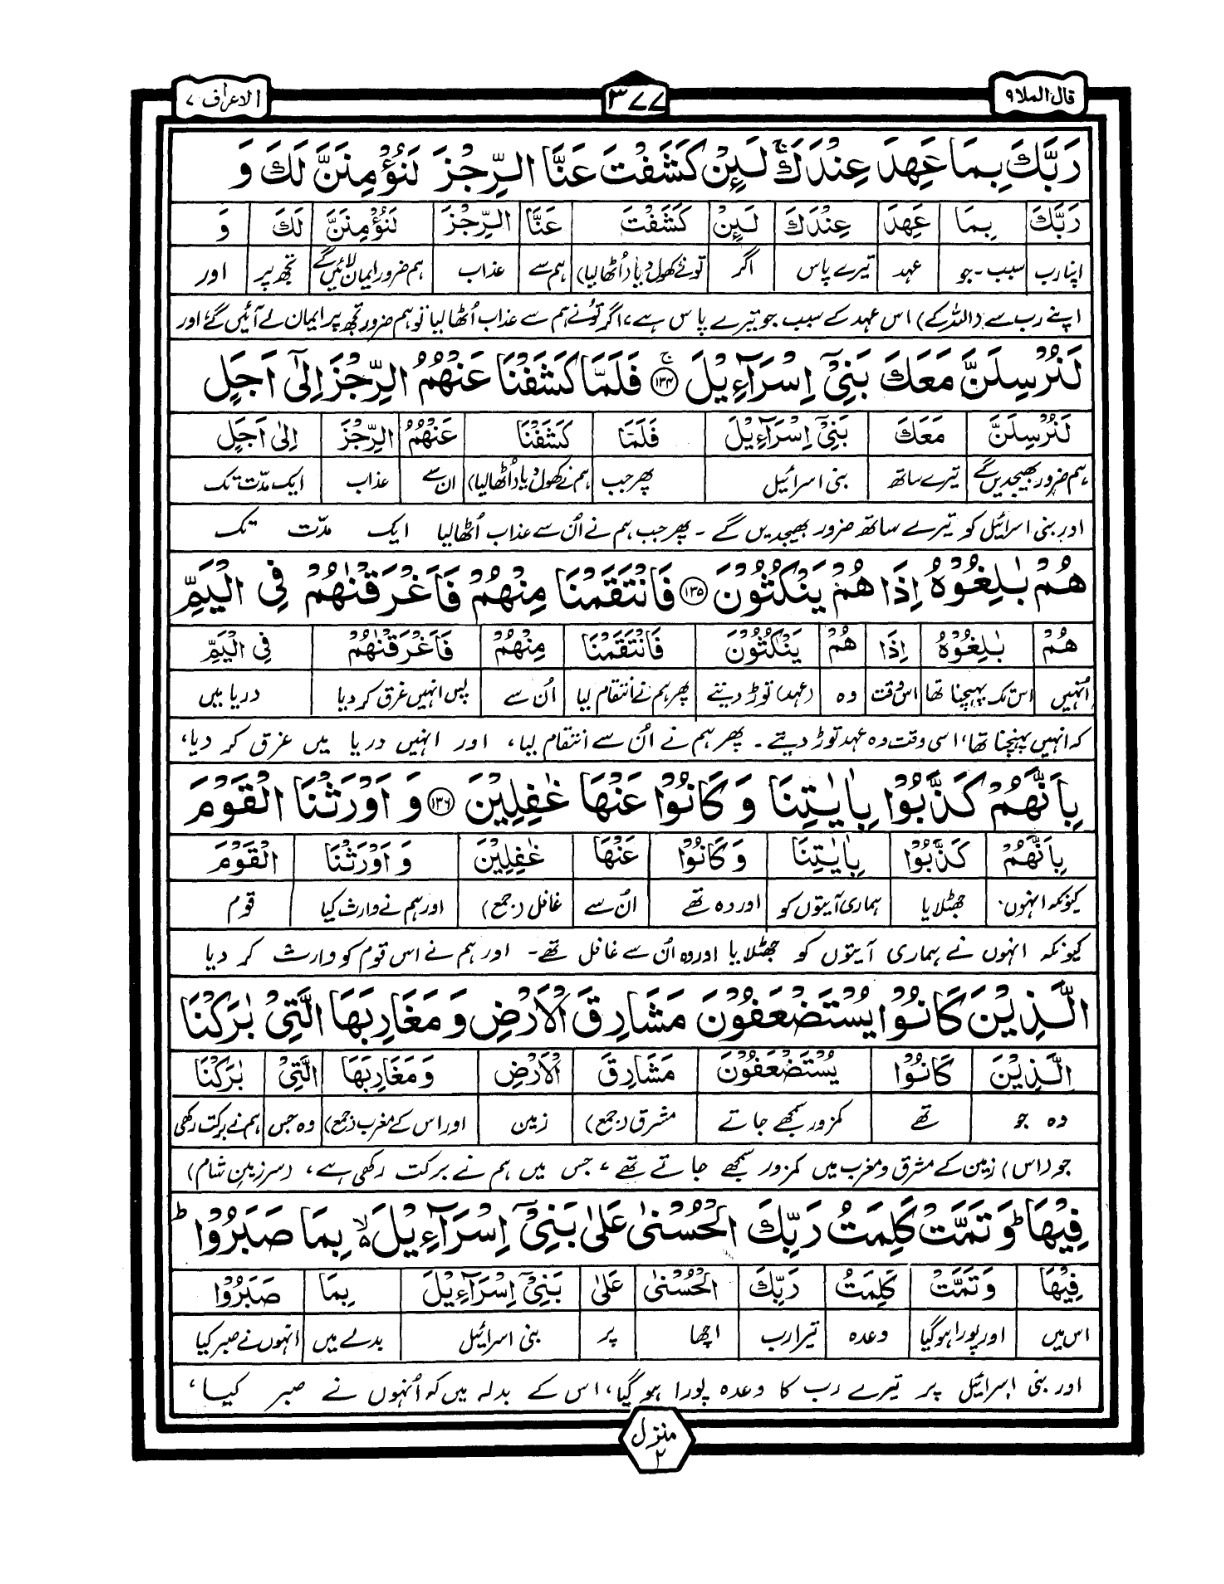 قال الملا ۹
۳۷۷
الاعراف ۷
رَبَّكَ بِمَا عَهِدَ عِنْدَكَ ۚ لَىِٕنْ كَشَفْتَ عَنَّا الرِّجْزَ لَنُؤْمِنَنَّ لَكَ وَ
رَبَّكَ بِمَا عَهِدَ عِنْدَكَ لَىِٕنْ كَشَفْتَ عَنَّا الرِّجْزَ لَنُؤْمِنَنَّ لَكَ وَ
اپنا رب سبب۔جو عہد تیرے پاس اگر تونے کھول دیا (اُٹھا لیا) ہم سے عذاب ہم ضرور ایمان لائیں گے تجھ پر اور
اپنے رب سے (اللہ کے) اس عہد کے سبب جو تیرے پاس ہے، اگر تُونے ہم سے عذاب اُٹھا لیا تو ہم ضرور تجھ پر ایمان لے آئیں گے اور
لَنُرْسِلَنَّ مَعَكَ بَنِيْٓ اِسْرَآءِيْلَ ۚ ﴿۱۳۴﴾ فَلَمَّا كَشَفْنَا عَنْهُمُ الرِّجْزَ اِلٰٓى اَجَلٍ
لَنُرْسِلَنَّ مَعَكَ بَنِيْٓ اِسْرَآءِيْلَ فَلَمَّا كَشَفْنَا عَنْهُمُ الرِّجْزَ اِلٰٓى اَجَلٍ
ہم ضرور بھیجدیں گے تیرے ساتھ بنی اسرائیل پھر جب ہم نے کھول دیا (اُٹھا لیا) ان سے عذاب ایک مدّت تک
اور بنی اسرائیل کو تیرے ساتھ ضرور بھیجدیں گے ۔ پھر جب ہم نے اُن سے عذاب اُٹھا لیا ایک مدّت تک
هُمْ بٰلِغُوْهُ اِذَا هُمْ يَنْكُثُوْنَ ﴿۱۳۵﴾ فَانْتَقَمْنَا مِنْهُمْ فَاَغْرَقْنٰهُمْ فِي الْيَمِّ
هُمْ بٰلِغُوْهُ اِذَا هُمْ يَنْكُثُوْنَ فَانْتَقَمْنَا مِنْهُمْ فَاَغْرَقْنٰهُمْ فِي الْيَمِّ
اُنہیں اس تک پہنچنا تھا اس وقت وہ (عہد) توڑ دیتے پھر ہم نے انتقام لیا اُن سے پس انہیں غرق کر دیا دریا میں
کہ انہیں پہنچنا تھا، اسی وقت وہ عہد توڑ دیتے ۔ پھر ہم نے اُن سے انتقام لیا، اور انہیں دریا میں غرق کر دیا،
بِاَنَّهُمْ كَذَّبُوْا بِاٰيٰتِنَا وَ كَانُوْا عَنْهَا غٰفِلِيْنَ ﴿۱۳۶﴾ وَ اَوْرَثْنَا الْقَوْمَ
بِاَنَّهُمْ كَذَّبُوْا بِاٰيٰتِنَا وَ كَانُوْا عَنْهَا غٰفِلِيْنَ وَ اَوْرَثْنَا الْقَوْمَ
کیونکہ انہوں۔ جھٹلایا ہماری آیتوں کو اور وہ تھے اُن سے غافل (جمع) اور ہم نے وارث کیا قوم
کیونکہ انہوں نے ہماری آیتوں کو جھٹلایا اور وہ اُن سے غافل تھے۔ اور ہم نے اس قوم کو وارث کر دیا
الَّذِيْنَ كَانُوْا يُسْتَضْعَفُوْنَ مَشَارِقَ الْاَرْضِ وَ مَغَارِبَهَا الَّتِيْ بٰرَكْنَا
الَّذِيْنَ كَانُوْا يُسْتَضْعَفُوْنَ مَشَارِقَ الْاَرْضِ وَ مَغَارِبَهَا الَّتِيْ بٰرَكْنَا
وہ جو تھے کمزور سمجھے جاتے مشرق (جمع) زمین اور اس کے مغرب (جمع) وہ جس ہم نے برکت رکھی
جو (اس) زمین کے مشرق و مغرب میں کمزور سمجھے جاتے تھے، جس میں ہم نے برکت رکھی ہے، (سرزمینِ شام)
فِيْهَا ؕ وَ تَمَّتْ كَلِمَتُ رَبِّكَ الْحُسْنٰى عَلٰى بَنِيْٓ اِسْرَآءِيْلَ ۙ۬ بِمَا صَبَرُوْا ؕ
فِيْهَا وَ تَمَّتْ كَلِمَتُ رَبِّكَ الْحُسْنٰى عَلٰى بَنِيْٓ اِسْرَآءِيْلَ بِمَا صَبَرُوْا
اس میں اور پورا ہو گیا وعدہ تیرا رب اچھا پر بنی اسرائیل بدلے میں انہوں نے صبر کیا
اور بنی اسرائیل پر تیرے رب کا وعدہ پورا ہو گیا، اس کے بدلہ میں کہ اُنہوں نے صبر کیا،
منزل
۲